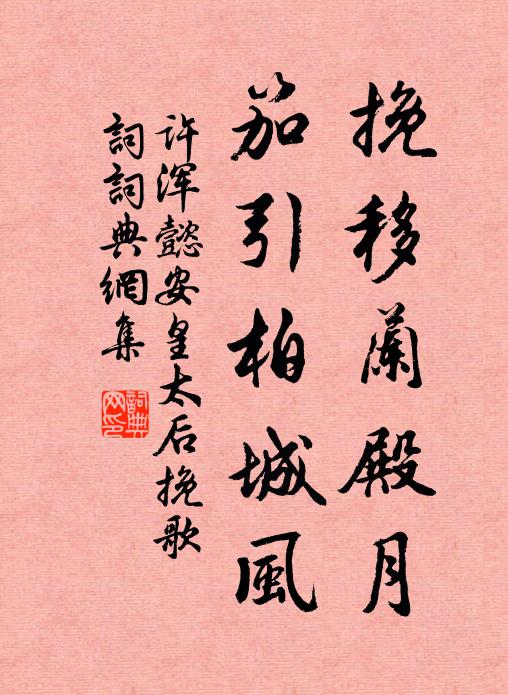 挽移蘭殿月
笳引柏城風
许浑懿安皇太后挽歌
詞詞典網集
詞典
网印